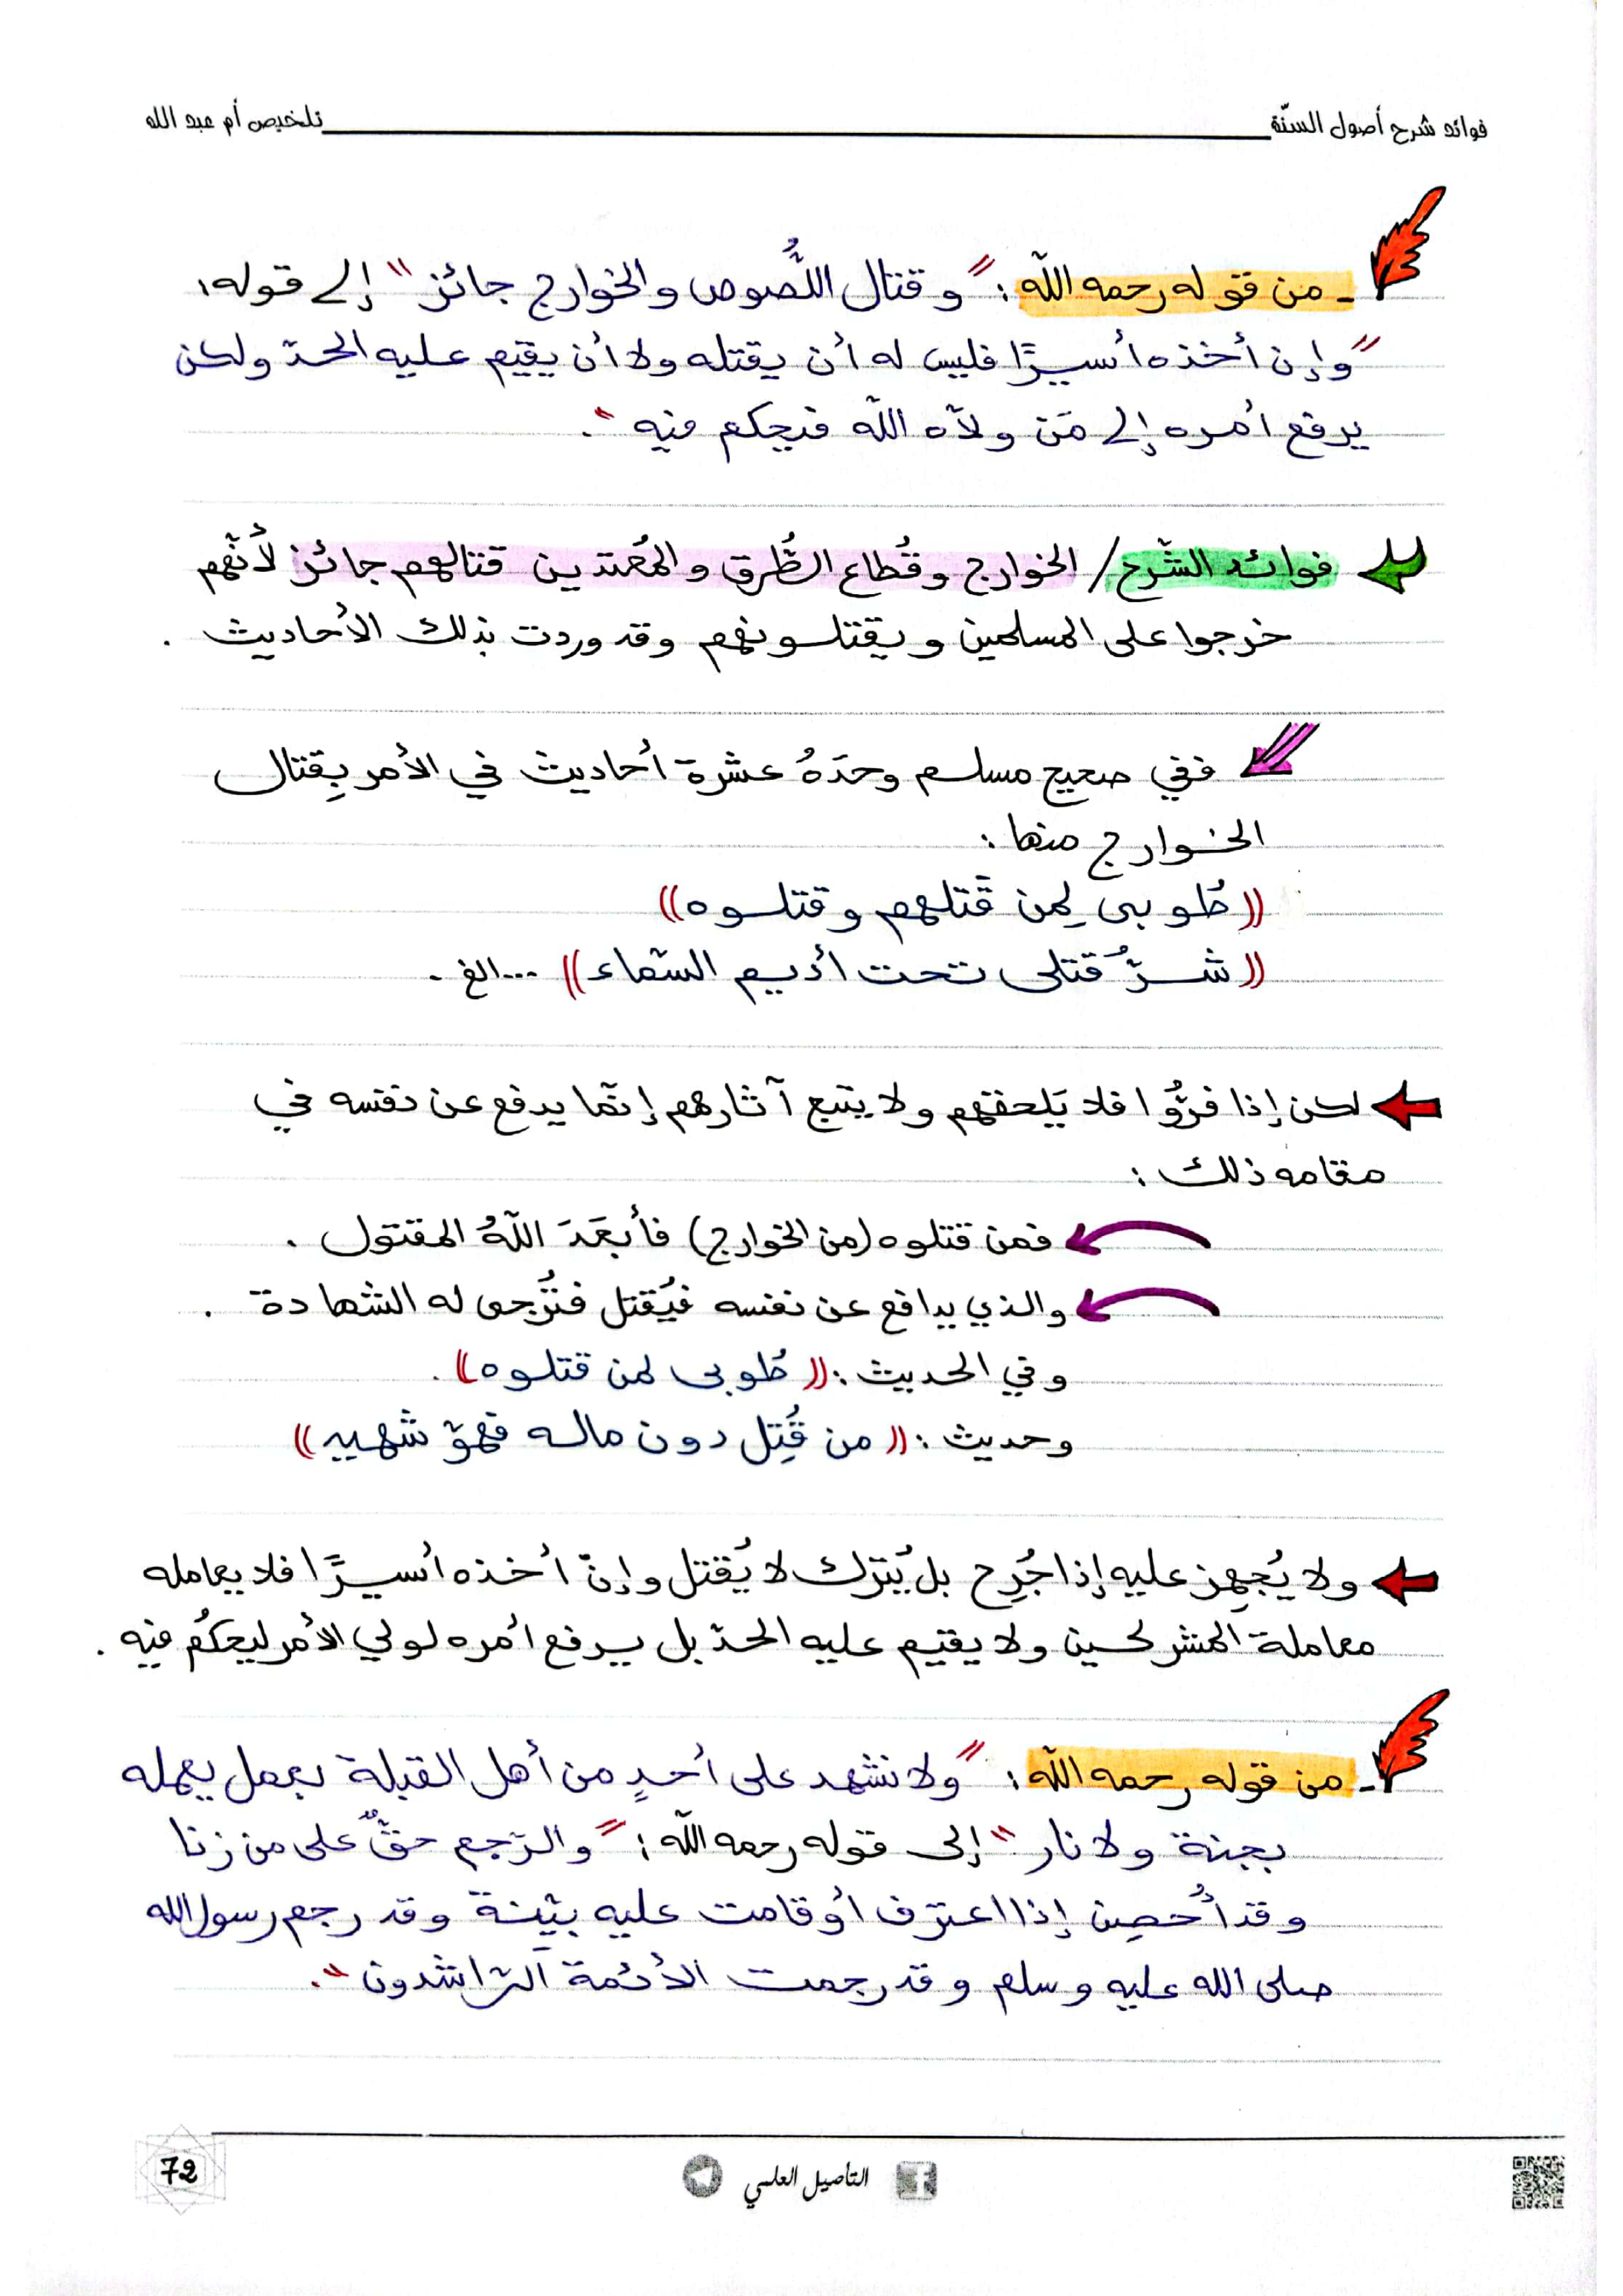 فوائد شرح أصول السنّة
تلخيص أم عبد الله
- من قوله رحمه اللّه : "وقتال اللُّصوص والخوارج جائز" إلى قوله:
"وإن أخذه أسيرًا فليس له أن يقتله ولا أن يقيم عليه الحدّ ولكن
يرفع أمره إلى مَن ولّاه اللّه فيحكم فيه".
فوائد الشّرح / الخوارج وقُطاع الطُّرق والمُعتدين قتالهم جائز لأنّهم
خرجوا على المسلمين ويقتلونهم وقد وردت بذلك الأحاديث .
ففي صحيح مسلم وحدَهُ عشرة أحاديث في الأمر بِقتال
الخوارج منها :
((طُوبى لِمن قَتلهم وقتلوه))
((شرُّ قتلى تحت أديم السّماء)) ...الخ .
لكن إذا فرُّوا فلا يَلحقهم ولا يتبع آثارهم إنّما يدفع عن نفسه في
مقامه ذلك :
فمن قتلوه (من الخوارج) فأبعَدَ اللّهُ المقتول .
والذي يدافع عن نفسه فيُقتل فتُرجى له الشهادة .
وفي الحديث : ((طُوبى لمن قتلوه)) .
وحديث : ((من قُتِل دون ماله فهوَ شهيد))
ولا يُجهِز عليه إذا جُرِح بل يُترك لا يُقتل وإنْ أخذه أسيرًا فلا يعامله
معاملة المشركين ولا يقيم عليه الحدّ بل يرفع أمره لولي الأمر ليحكُم فيه .
- من قوله رحمه اللّه : "ولا نشهد على أحدٍ من أهل القبلة بعمل يعمله
بجنة ولا نار" إلى قوله رحمه اللّه : "والرّجم حقٌّ على من زنا
وقد أُحصِن إذا اعترف أو قامت عليه بيّنة وقد رجم رسول الله
صلى الله عليه وسلم وقد رجمت الأئمة الرّاشدون".
التأصيل العلمي
72